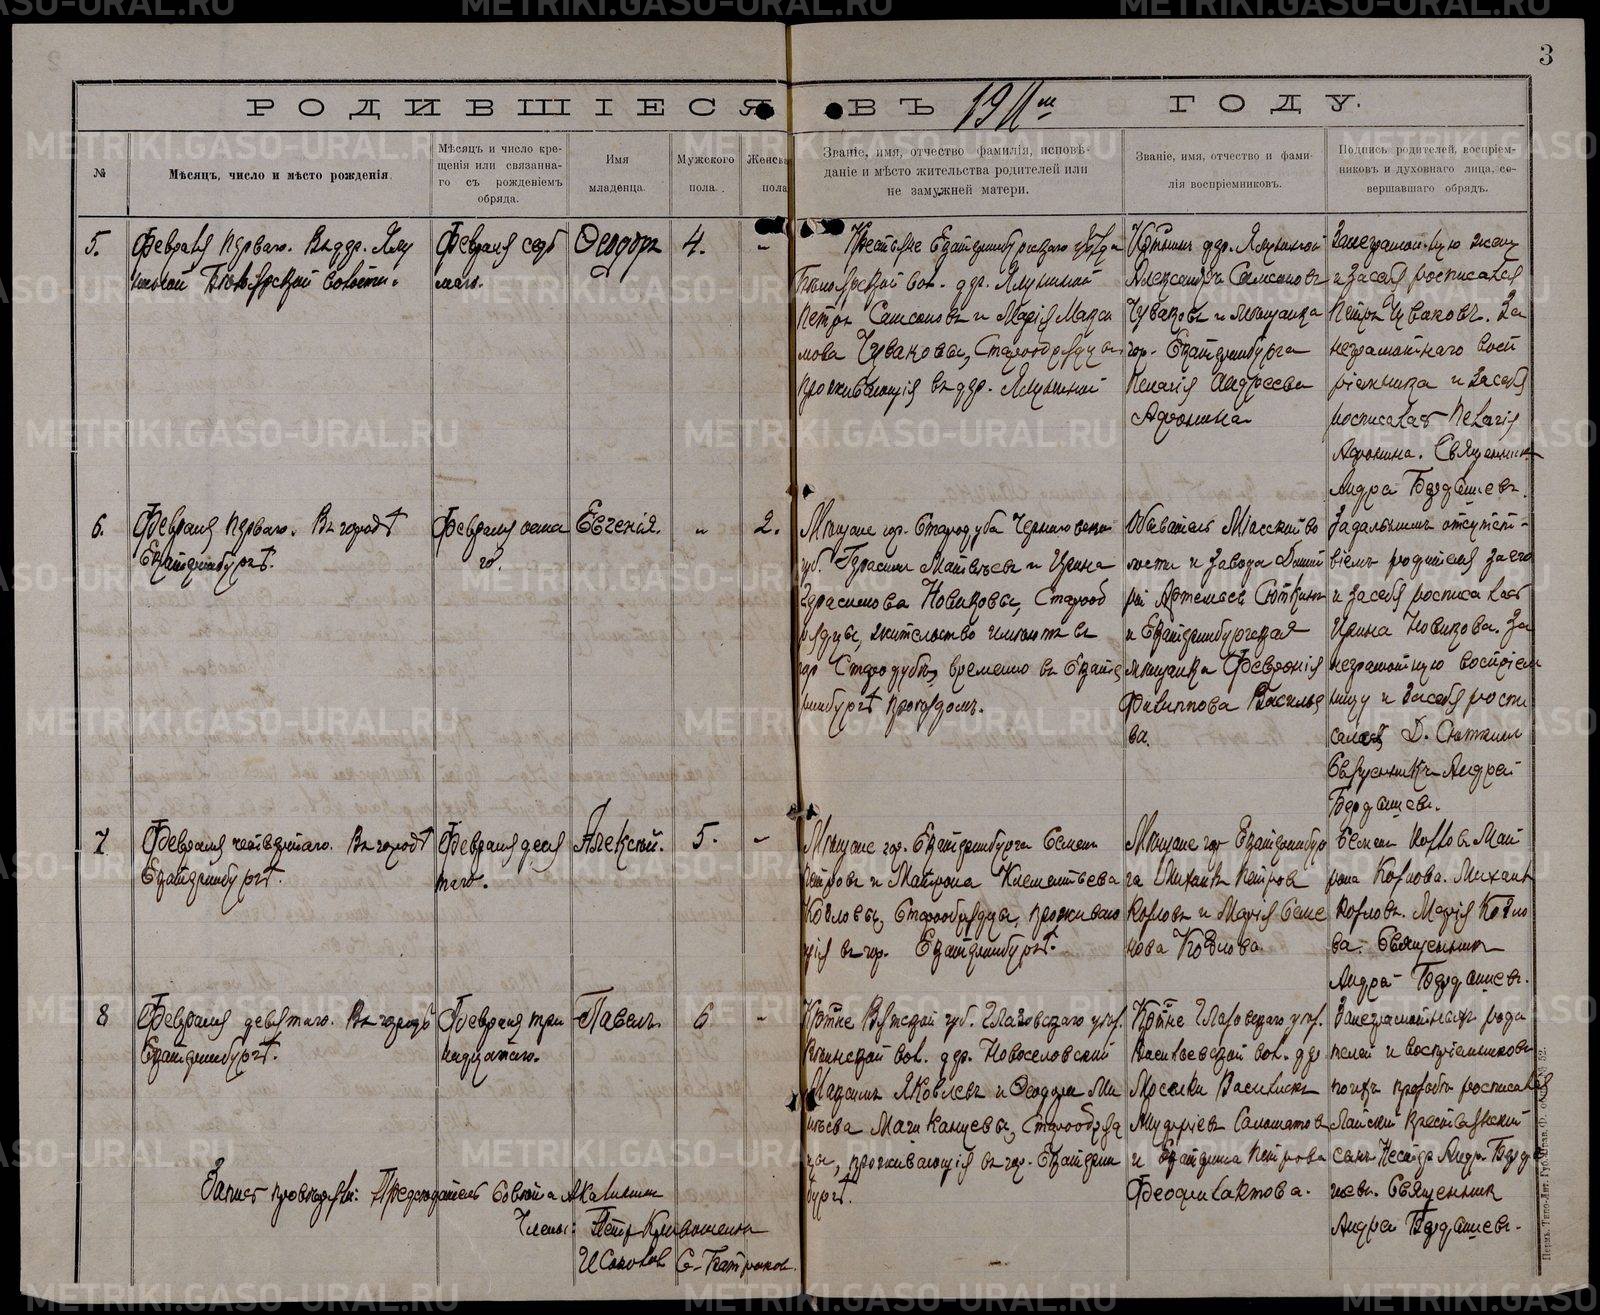 3
РОДИВШІЕСЯ ВЪ 1911 м ГОДУ.
№
Мѣсяцъ, число и мѣсто рожденія.
Мѣсяцъ и число кре-
щенія или связанна-
го съ рожденіемъ
обряда.
Имя
младенца.
Мужского
пола.
Женска
пола
Званіе, имя, отчество фамилія, исповѣ-
даніе и мѣсто жительства родителей или
не замужней матери.
Званіе, имя, отчество и фами-
лія воспріемниковъ.
Подпись родителей, воспріем-
никовъ и духовнаго лица, со-
вершавшаго обрядъ.
5.
Февраля перваго. Въ дер.
волости.
Февраля седь
маго.
Ѳеодоръ
4.
-
Крестьяне Екатеринбургскаго уѣзда
вол. дер.
Петръ Самсоновъ и Марія Макси
мова Чуваковы, Старообрядцы
проживающія въ дер.
Кр-нинъ дер.
Александръ Самсоновъ
Чуваковъ и мѣщанка
гор. Екатеринбурга
Пелагія Андреева
Афонина
За неграмотную жену
и за себя росписался
Петръ Чуваковъ. За
неграмотнаго восп
ріемника и за себя
росписалась Пелагія
Афонина. Священникъ
Андрей Бердышевъ.
6.
Февраля перваго. Въ городѣ
Екатеринбургѣ.
Февраля осма
го.
Евгенія.
"
2.
Мѣщане гор. Стародуба Чернигов
губ. Герасимъ Матвѣевъ и Ирина
Герасимова Новиковы, Старооб
рядцы, жительство имѣютъ въ
гор. Стародубѣ, временно въ Екате
ринбургѣ проѣздомъ.
Обыватель Міасской во
лости и завода Дмит
рій Артемьевъ Сюткинъ
и Екатеринбургская
мѣщанка Февронія
Филиппова Василье
ва.
За дальнимъ отсутст-
віемъ родителя за его
и за себя росписалась
Ирина Новикова. За
неграмотную воспріем
ницу и за себя роспи
сался Д. Сюткин
Священникъ Андрей
Бердышевъ.
7
Февраля четвертаго. Въ городѣ
Екатеринбургѣ.
Февраля деся
таго.
Алексей.
5.
-
Мѣщане гор. Екатеринбурга Семенъ
Петровъ и Матрона Клементьева
Козловы, Старообрядцы, проживаю
щія въ гор. Екатеринбургѣ.
Мѣщане гор Екатеринбур
га Михаилъ Петров
Козловъ и Марія Семе
нова Козлова.
Семенъ Козловъ Мат
рона Козлова. Михаилъ
Козловъ. Марія Козло
ва. Священникъ
Андрей Бердышевъ.
8
Февраля девятаго. Въ городѣ
Екатеринбургѣ.
Февраля три
надцатаго.
Павелъ.
6
-
Кр-не Вятской губ. Глазовскаго уѣз.
вол. дер. Новоселовской
Максимъ Яковлевъ и Ѳеодора
Старообряд
цы, проживающія въ гор. Екатерин
бургѣ.
Кр-не Глазовскаго уѣз.
Васильевской вол. дер
Василискъ
и Екатерина Петрова
Феофилактова.
За неграмотныхъ роди
телей и воспріемниковъ
по ихъ прозьбѣ росписался
сынъ Андр. Берды
шевъ. Священникъ
Андрей Бердышевъ.
Записъ провѣряли: Председатель Совѣта А Калинин
Члены: Петр
И Соколов С.
METRIKI.GASO-URAL.RU